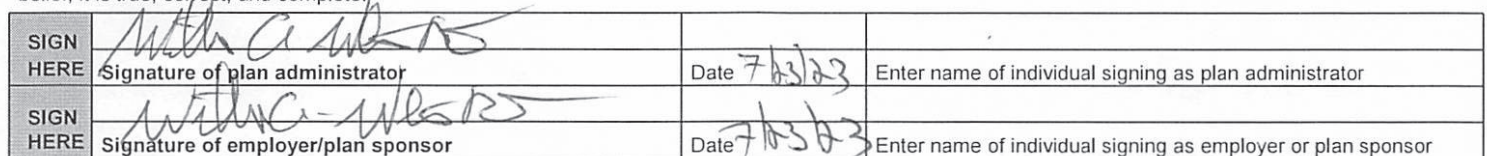 belief, it is true, correct, and complete.
SIGN
HERE Signature of plan administrator Date 7/23/23 Enter name of individual signing as plan administrator
SIGN
HERE Signature of employer/plan sponsor Date 7/23/23 Enter name of individual signing as employer or plan sponsor